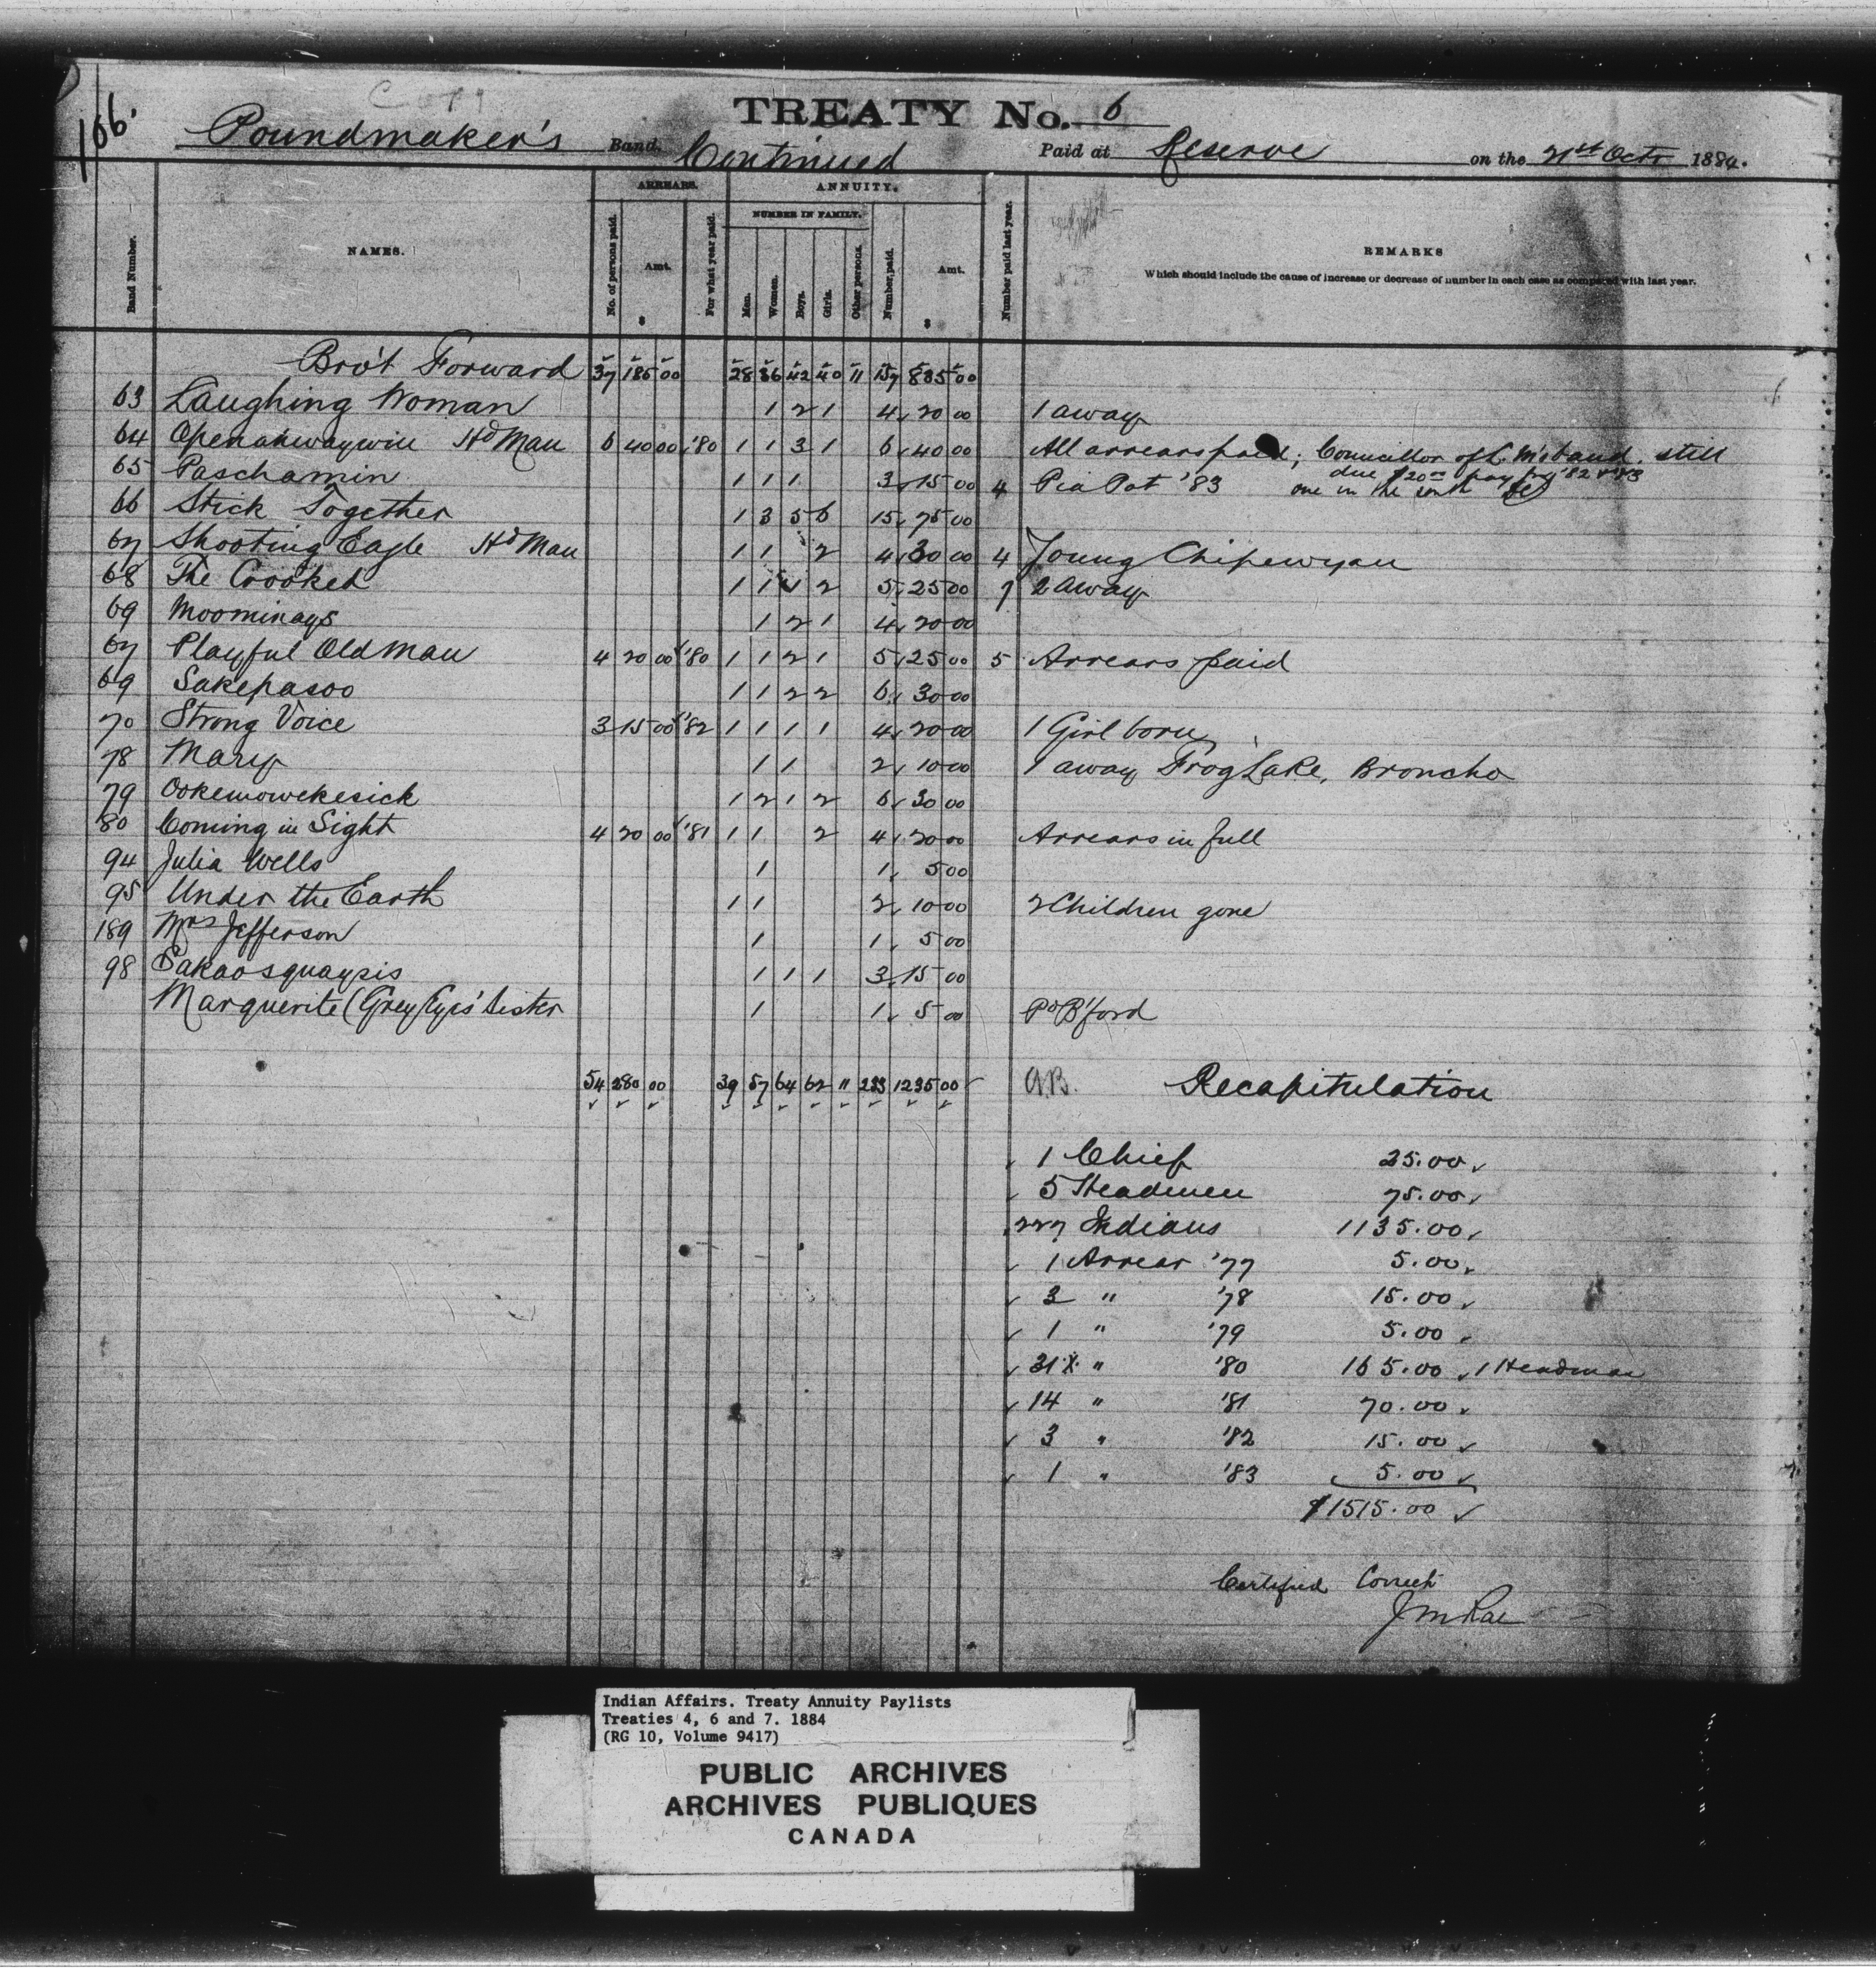 Copy
166.
TREATY No. 6
Poundmaker's Band. Continued Paid at Reserve on the 21st Octr 1884.
Band Number.
NAMES.
ARREARS.
No. of persons paid.
Amt.
$
For what year paid.
ANNUITY.
NUMBER IN FAMILY.
Men.
Women.
Boys.
Girls.
Other persons.
Number paid.
Amt.
$
Number paid last year.
REMARKS
Which should include the cause of increase or decrease of number in each case as compared with last year.
Bro't Forward 37 185 00 28 36 42 40 11 157 835 00
63 Laughing Woman 1 2 1 4 20 00 1 away
64 Hd Man 6 40 00 '80 1 1 3 1 6 40 00 All arrears paid; Councillor of band. still
due $20 00 pay for '82 & '83
65 Paschamin 1 1 1 3 15 00 4 Pia Pot '83 one in the south
66 Stick Together 1 3 5 6 15 75 00
67 Shooting Eagle Hd Man 1 1 2 4 30 00 4 Young Chipewyan
68 The Crooked 1 1 1 2 5 25 00 7 2 away
69 Moominays 1 2 1 4 20 00
67 Playful Old Man 4 20 00 '80 1 1 2 1 5 25 00 5 Arrears paid
69 Sakepasoo 1 1 2 2 6 30 00
70 Strong Voice 3 15 00 '82 1 1 1 1 4 20 00 1 Girl born
78 Mary 1 1 2 10 00 1 away Frog Lake, Broncho
79 Ookemowekesick 1 2 1 2 6 30 00
80 Coming in Sight 4 20 00 '81 1 1 2 4 20 00 Arrears in full
94 Julia Wells 1 1 5 00
95 Under the Earth 1 1 2 10 00 2 Children gone
189 Mrs Jefferson 1 1 5 00
98 Sakaosquaysis 1 1 1 3 15 00
Marguerite (Grey Eyes' Sister 1 1 5 00 Pd B'ford
54 280 00 39 57 64 62 11 233 1235 00
Recapitulation
1 Chief 25.00
5 Headmen 75.00
227 Indians 1135.00
1 Arrear '77 5.00
3 " '78 15.00
1 " '79 5.00
31 " '80 165.00 1 Headman
14 " '81 70.00
3 " '82 15.00
1 " '83 5.00
$1515.00
Certified Correct
J M Rae
Indian Affairs. Treaty Annuity Paylists
Treaties 4, 6 and 7. 1884
(RG 10, Volume 9417)
PUBLIC ARCHIVES
ARCHIVES PUBLIQUES
CANADA